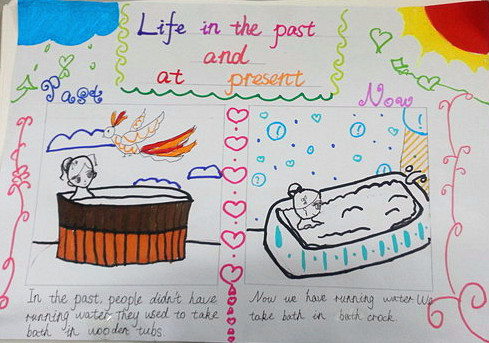 Life in the past
and
at present
Past
Now
In the past, people didn't have
running water, They used to take
bath in wooden tubs.
Now we have running water. We
take bath in bath crock.